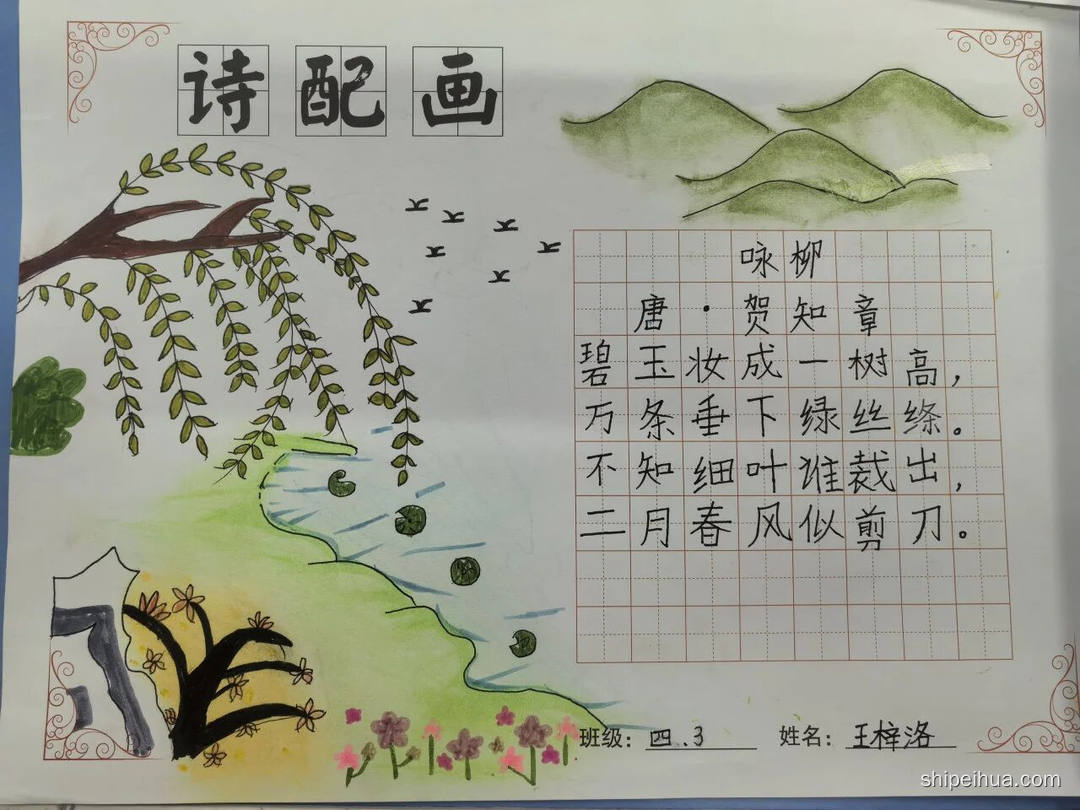 诗配画
咏柳
唐·贺知章
碧玉妆成一树高，
万条垂下绿丝绦。
不知细叶谁裁出，
二月春风似剪刀。
班级：四.3 姓名：王梓洛
shipeihua.com